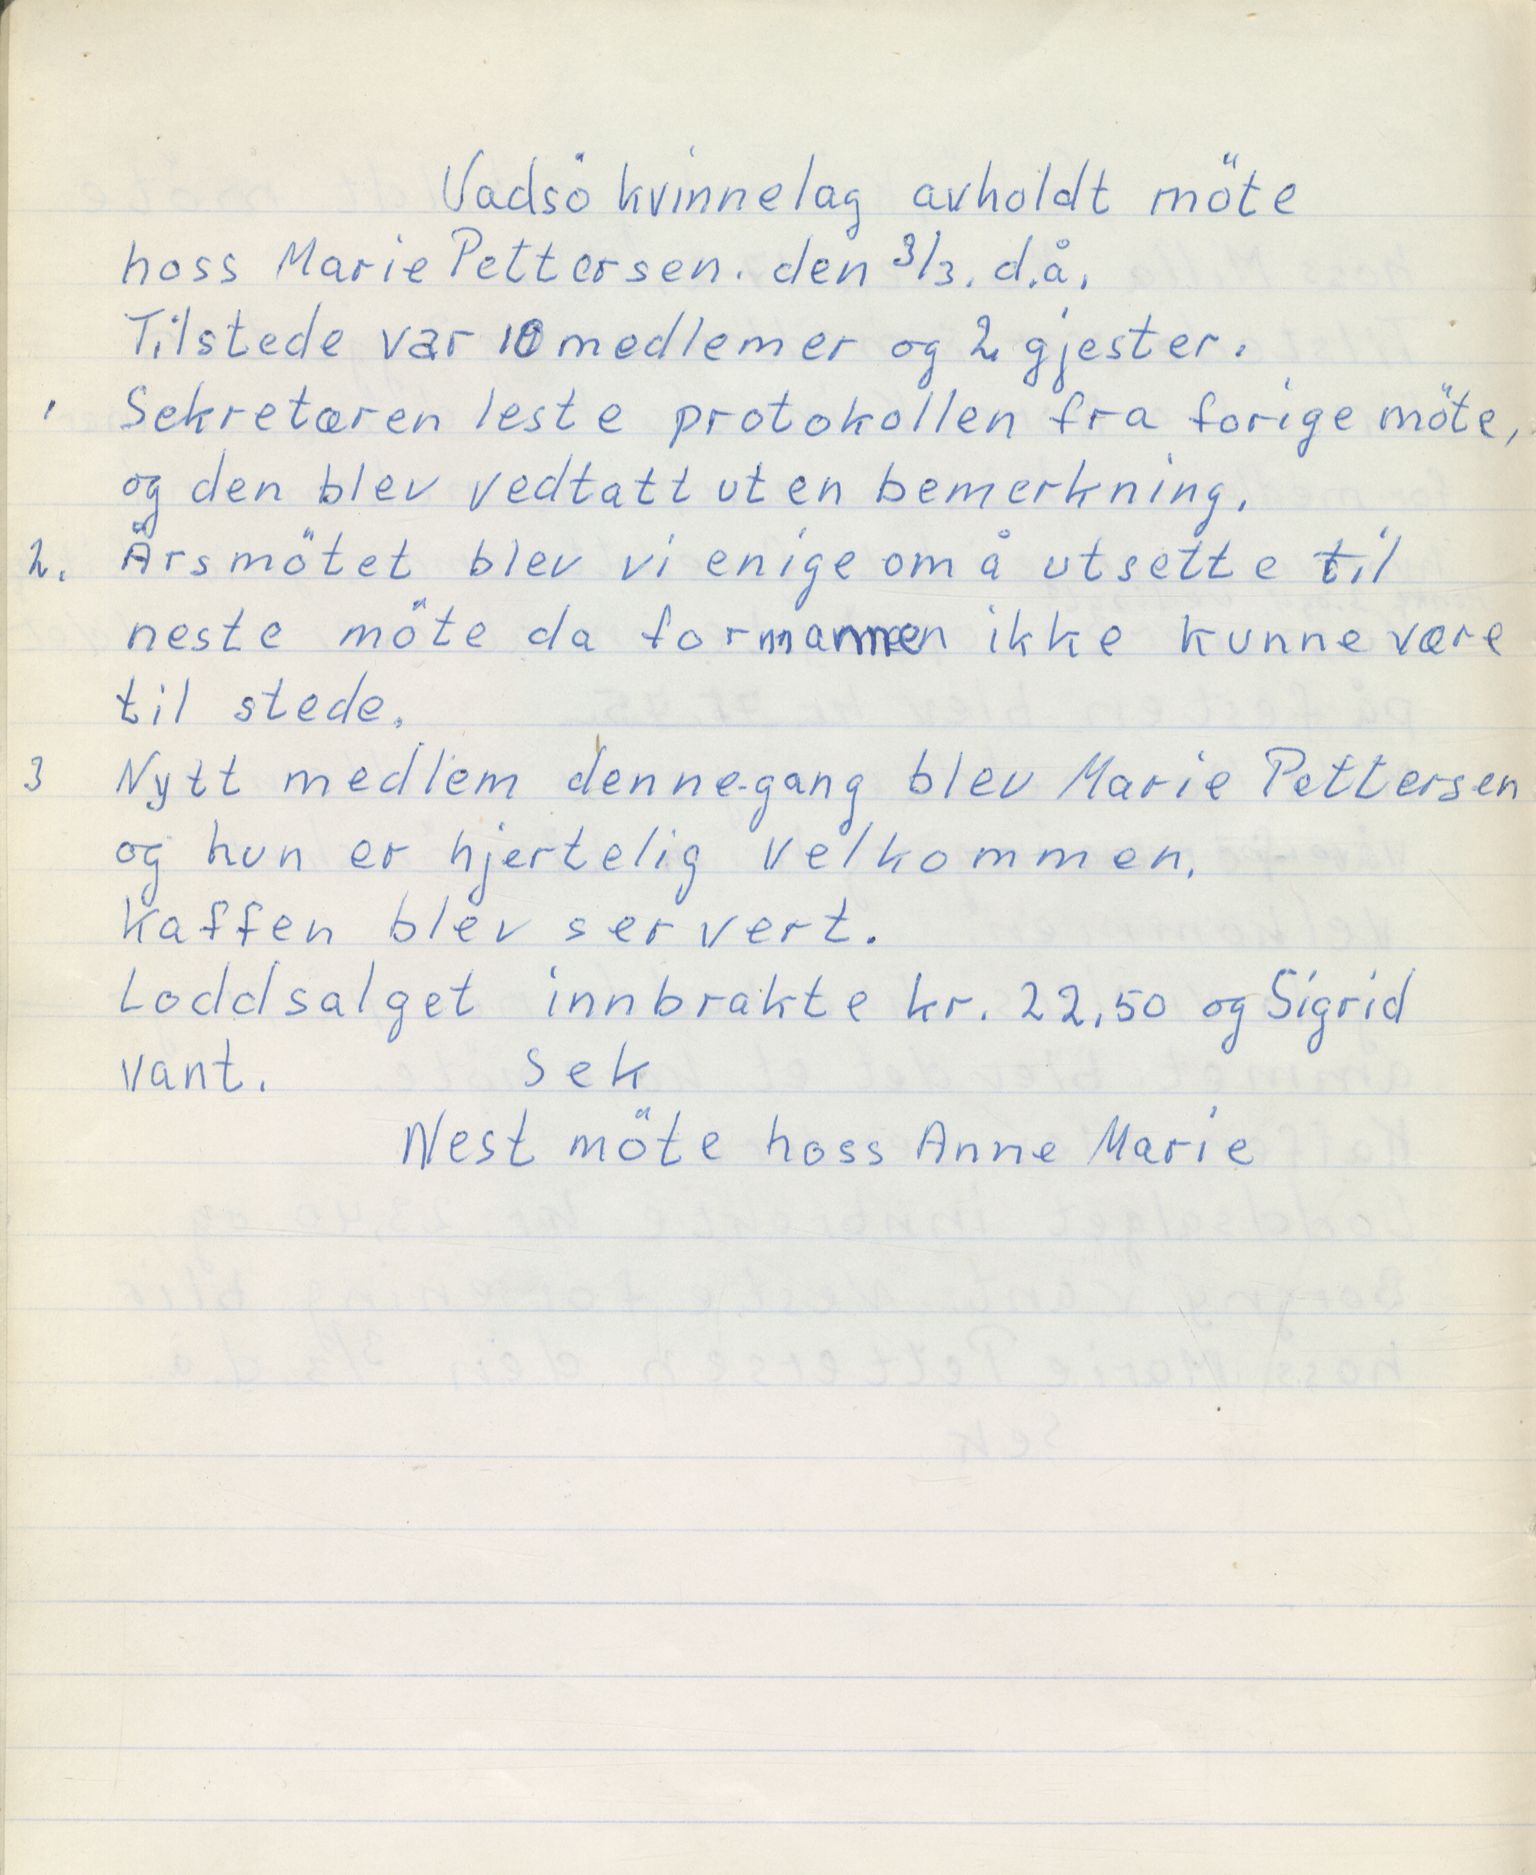 Vadsö kvinnelag avholdt möte
hoss Marie Pettersen. den 3/3. d.å.
Tilstede var 10 medlemer og 2 gjester.
1 Sekretæren leste protokollen fra forige möte,
og den blev vedtatt uten bemerkning.
2. Årsmötet blev vi enige om å utsette til
neste möte da formannen ikke kunne være
til stede.
3 Nytt medlem denne-gang blev Marie Pettersen
og hun er hjertelig velkommen.
Kaffen blev servert.
Loddsalget innbrakte kr. 22,50 og Sigrid
vant. Sek
Nest möte hoss Anne Marie